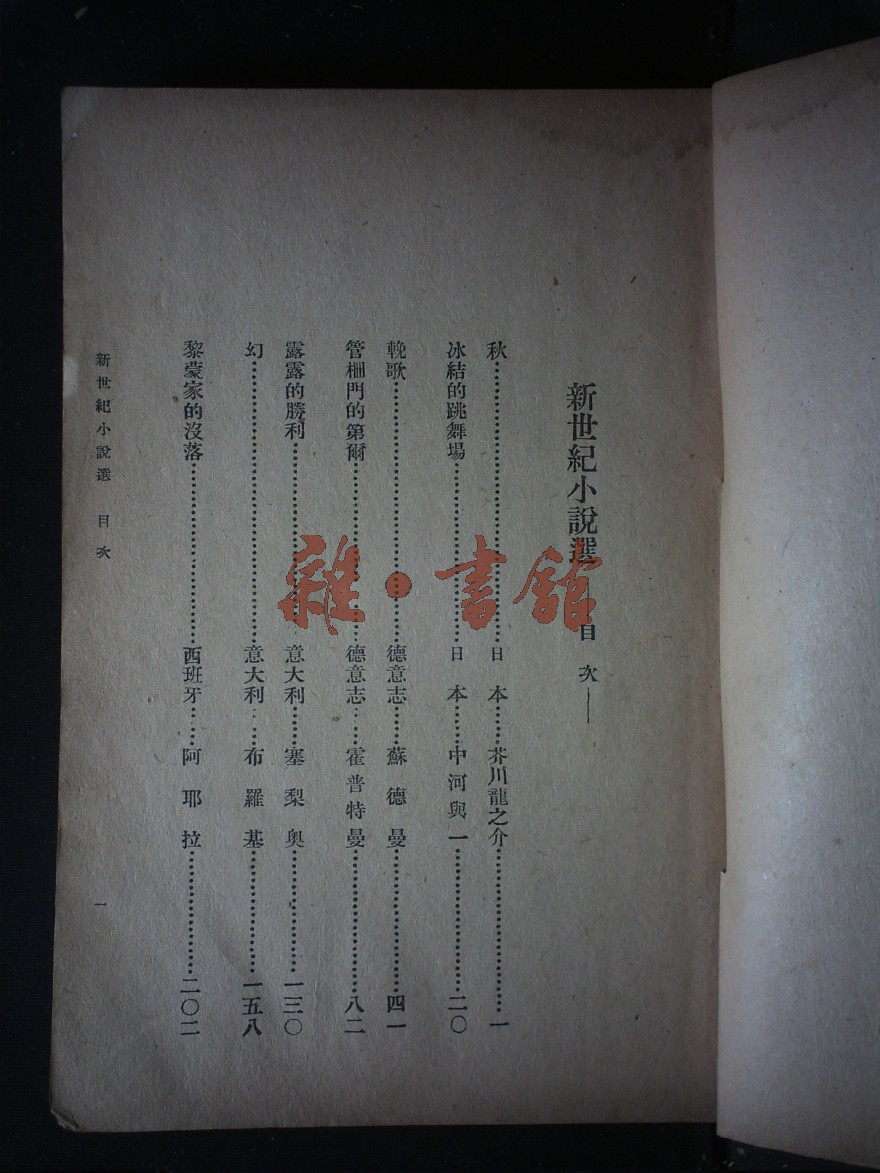 新世紀小說選——目次——
秋……日本……芥川龍之介……一
冰結的跳舞場……日本……中河與一……二〇
輓歌……德意志……蘇德曼……四一
管柵門的第爾……德意志……霍普特曼……八二
露露的勝利……意大利……塞梨奧……一三〇
幻……意大利……布羅基……一五八
黎蒙家的沒落……西班牙……阿耶拉……二〇二
新世紀小說選 目次
一
雜·書館